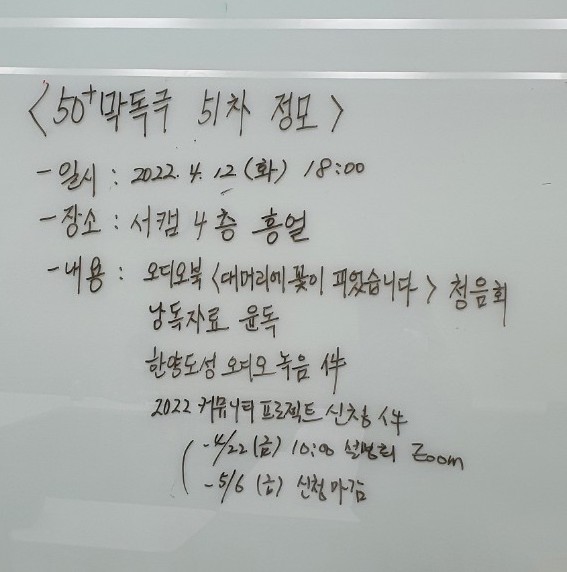 <50+막독극 51차 정모>
- 일시 : 2022. 4. 12 (화) 18:00
- 장소 : 서캠 4층 흥얼
- 내용 : 오디오북 <대머리에 꽃이 피었습니다> 청음회
낭독자료 윤독
한양도성 오디오 녹음 件
2022 커뮤니티 프로젝트 신청 件
( - 4/22 (금) 10:00 설명회 Zoom
- 5/6 (금) 신청마감